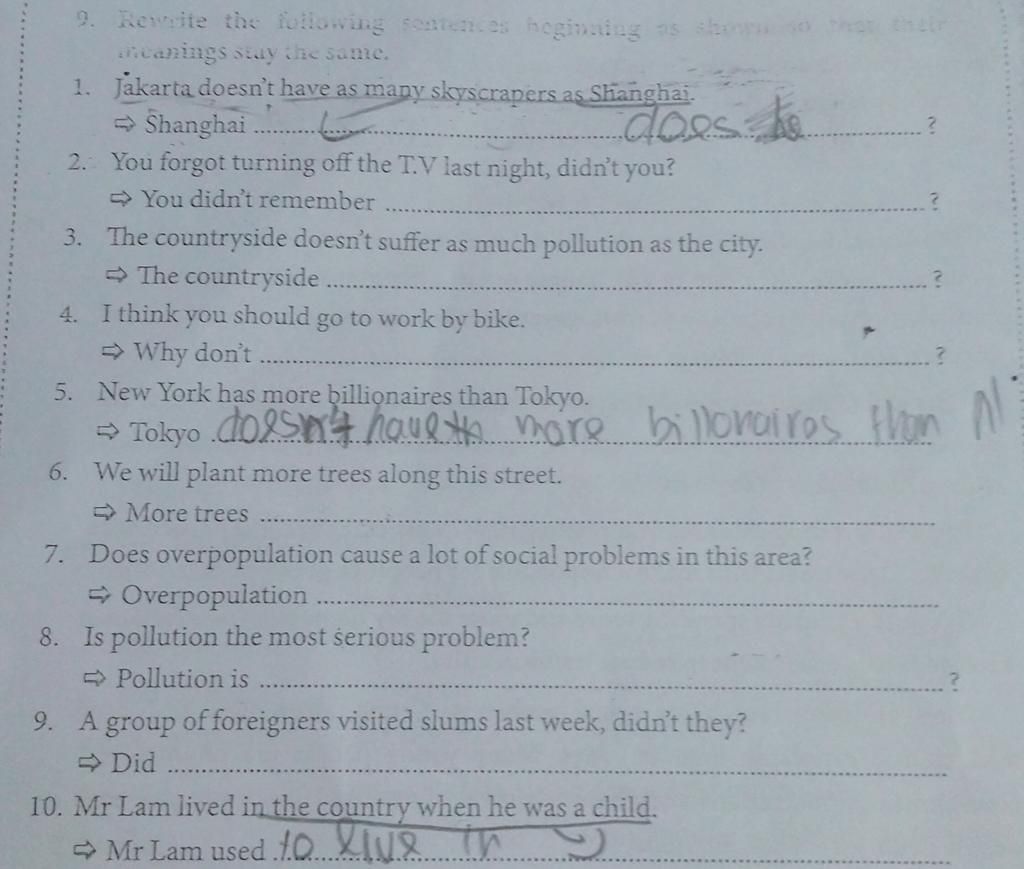 9. Rewrite the following sentences beginning as shown so that their
meanings stay the same.
1. Jakarta doesn't have as many skyscrapers as Shanghai.
⇨ Shanghai .......... does .......... ?
2. You forgot turning off the T.V last night, didn't you?
⇨ You didn't remember .......... ?
3. The countryside doesn't suffer as much pollution as the city.
⇨ The countryside .......... ?
4. I think you should go to work by bike.
⇨ Why don't .......... ?
5. New York has more billionaires than Tokyo.
⇨ Tokyo doesn't have more billonairos than N
6. We will plant more trees along this street.
⇨ More trees ..........
7. Does overpopulation cause a lot of social problems in this area?
⇨ Overpopulation ..........
8. Is pollution the most serious problem?
⇨ Pollution is .......... ?
9. A group of foreigners visited slums last week, didn't they?
⇨ Did ..........
10. Mr Lam lived in the country when he was a child.
⇨ Mr Lam used to live in ..........